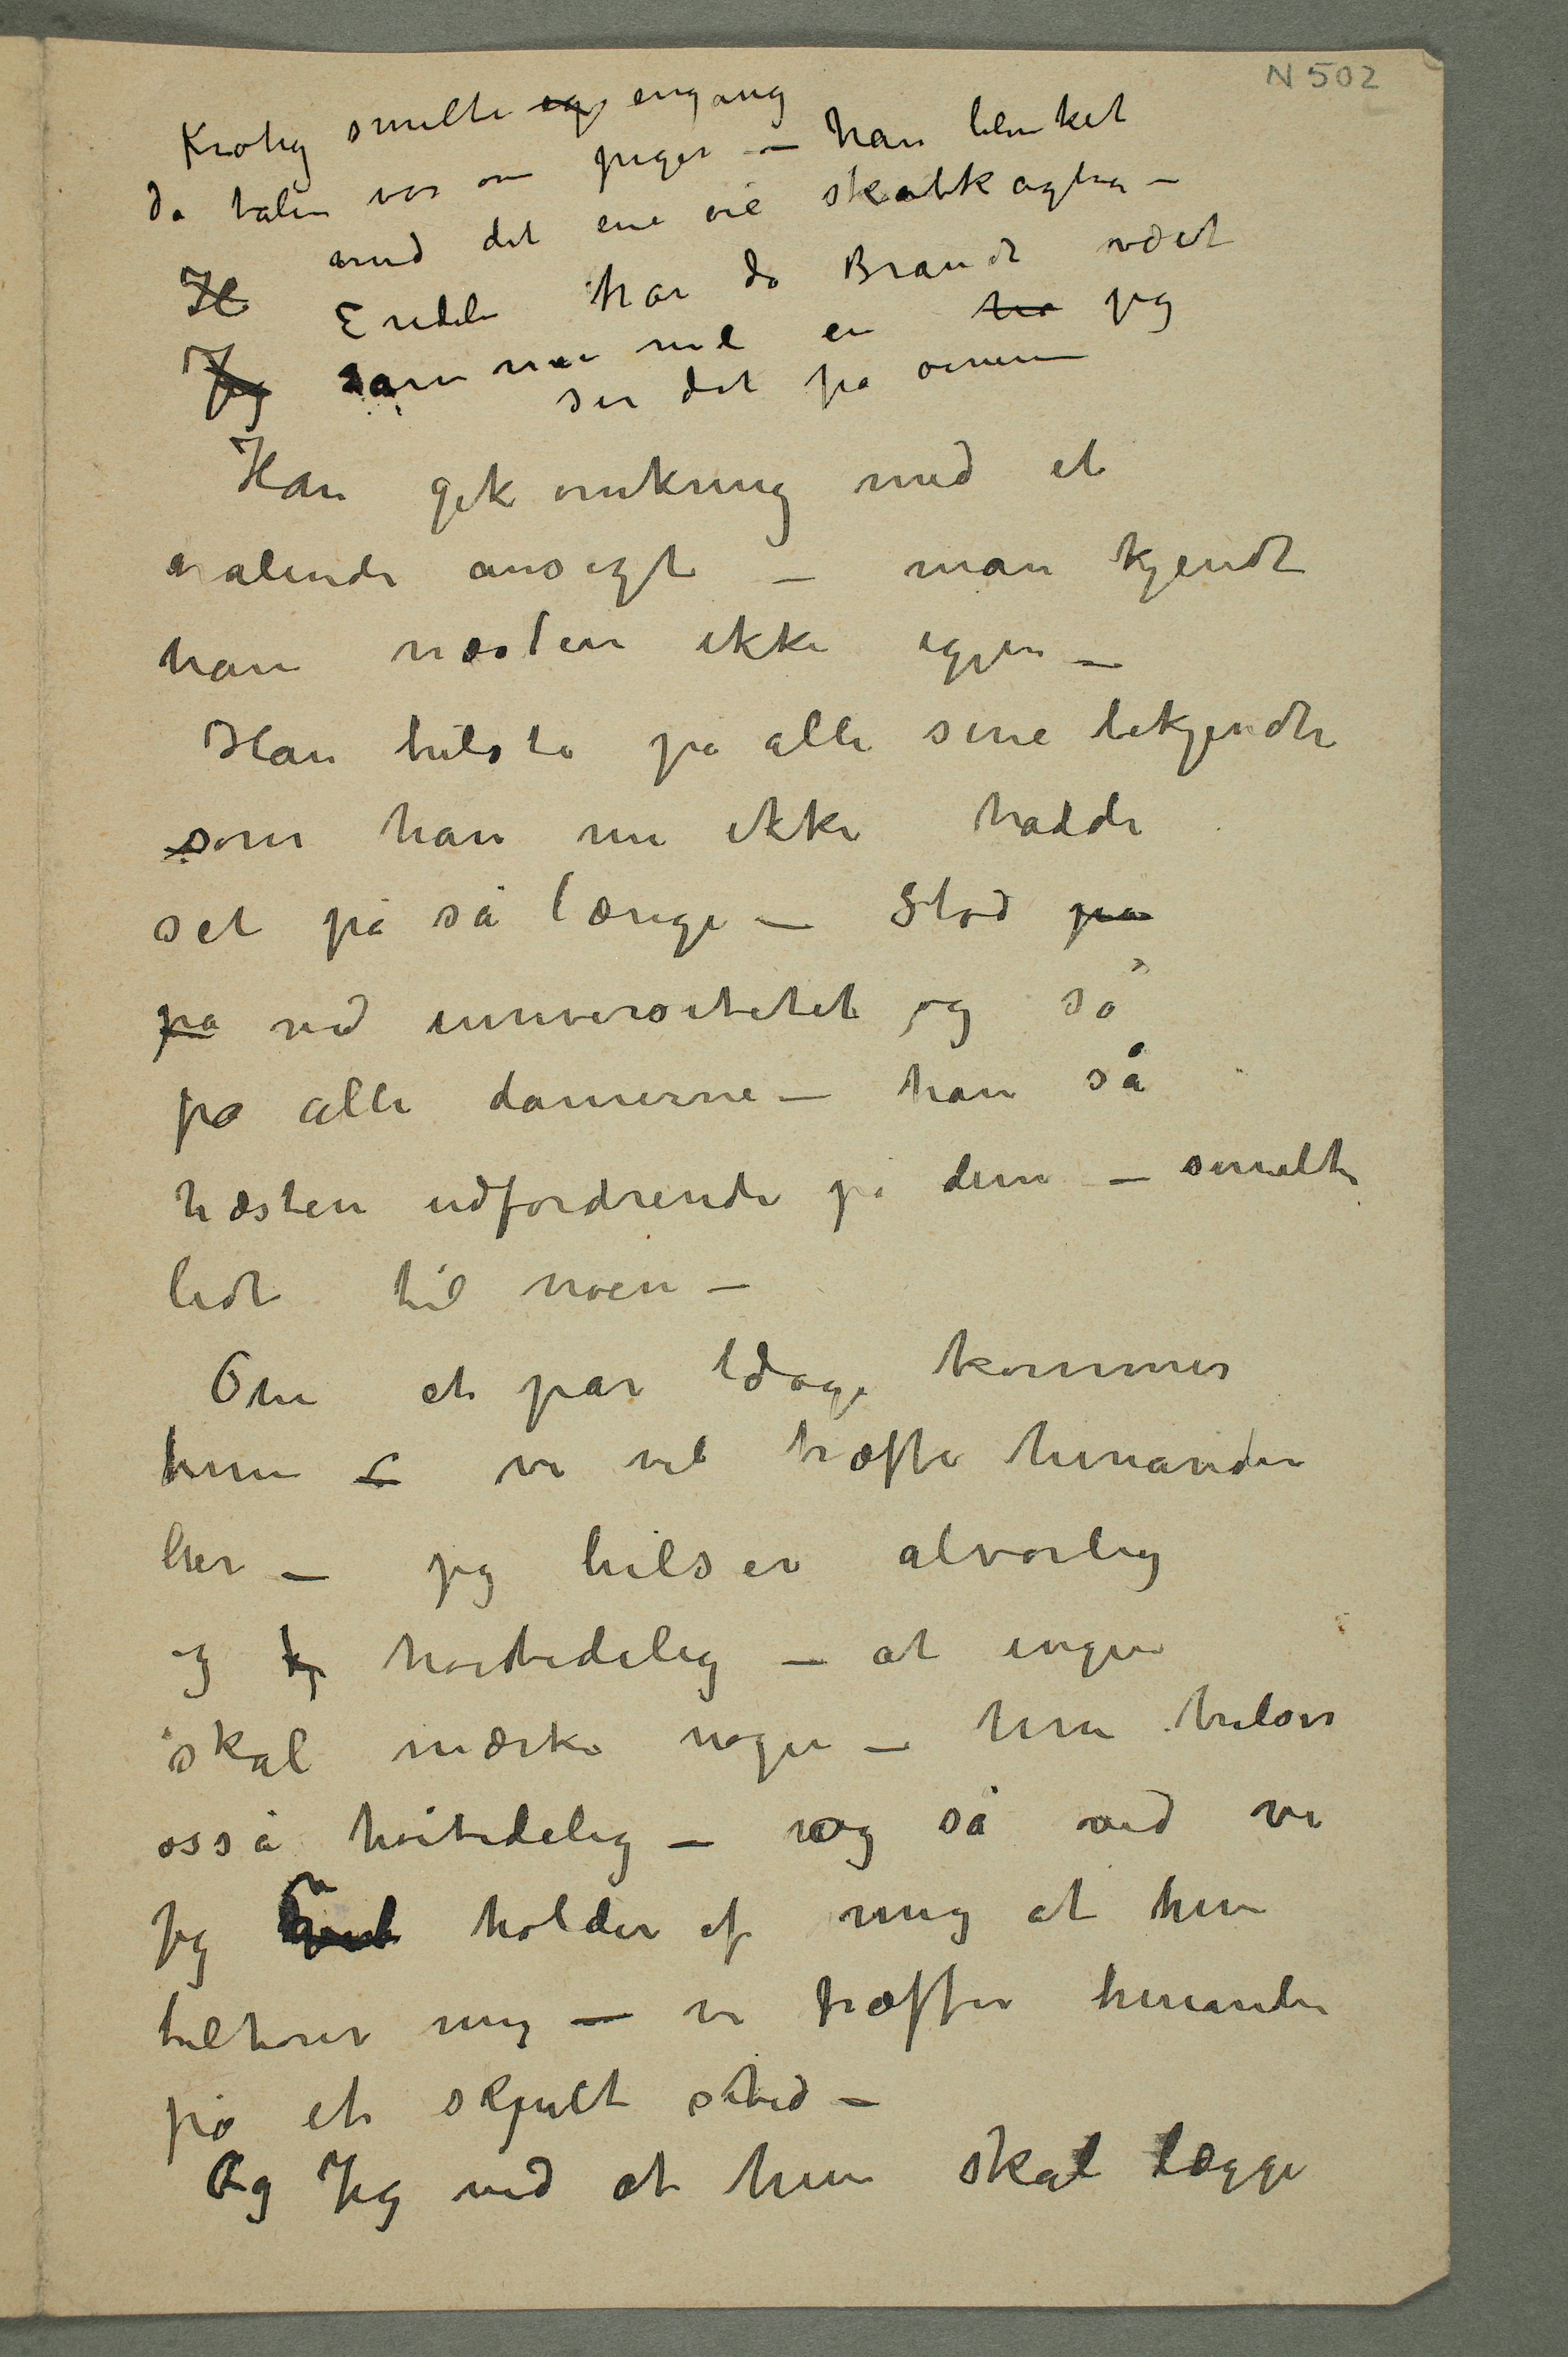 N 502
Krohg smilte engang
da talen var om piger – han blinket
med det ene øie skalkagtig –
H Endelig har da Brandt været
Jeg sammen med en ha jeg
ser det på øinene
Han gik omkring med et
strålende ansigt – man kjendte
ham næsten ikke igjen –
Han hilste på alle sine bekjendte
som han nu ikke hadde
set på så længe – Stod på
på ved universitetet og så
på alle damerne – han så
næsten udfordrende på dem – smilte
lidt til noen –
Om et par dage kommer
hun – vi vil træffe hinanden
her – jeg hilser alvorlig
og høitidelig – at ingen
skal mærke noget – hun hilser
osså høitidelig – og så ved vi
Jeg holder af mig at hun
tilhører mig – vi træffer hinanden
på et skjult sted –
Og Jeg ved at hun skal lægge